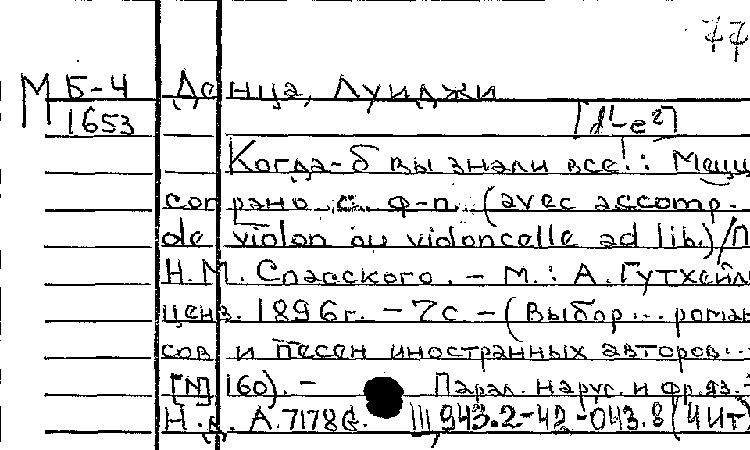 77
М Б-4 Денца, Луиджи
1653
Когда-б вы знали все!: Мецц
сопрано с ф-п. (avec accomp.
de violon ou violoncelle ad lib.)/П
Н.М. Спасского. - М.: А. Гутхейл
ценз. 1896г. - 7с - (Выбор... роман
сов и песен иностранных авторов...
[N] 160). - Парал. на рус. и фр. яз.
Н.д. А.7178G. III 943.2-42-043.8(4Ит)